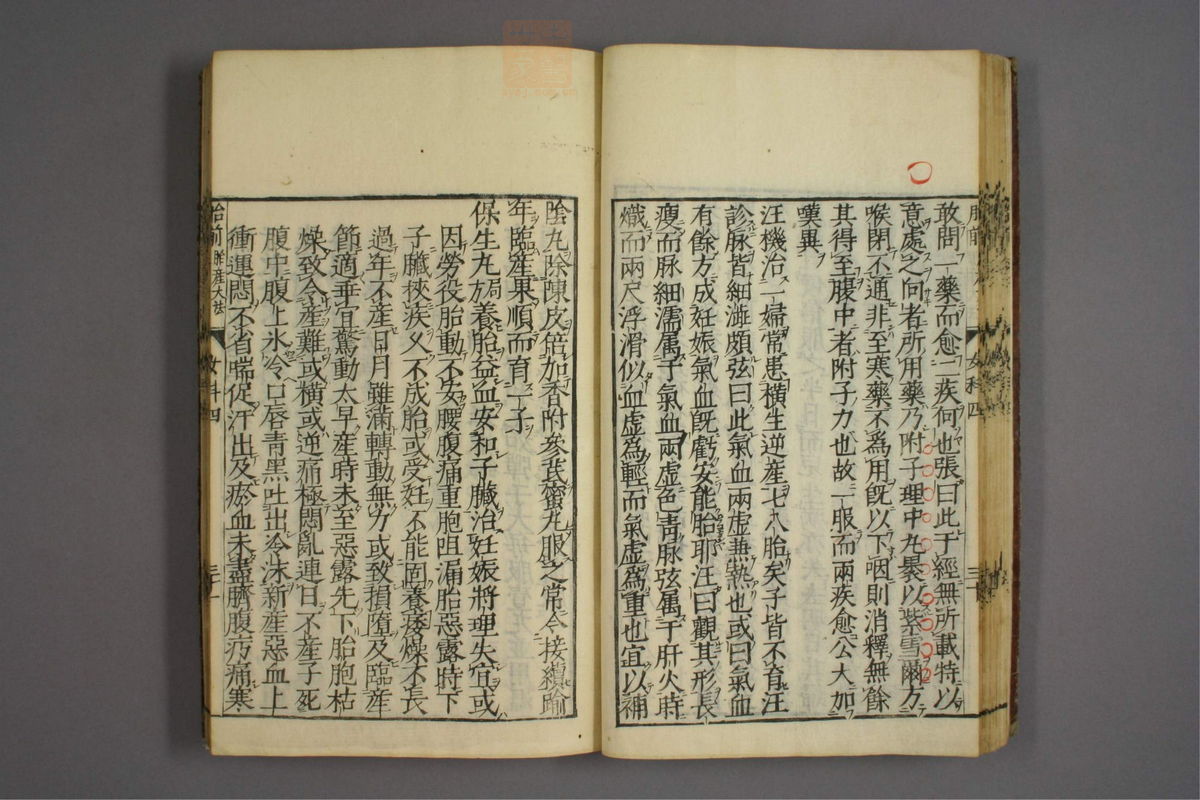 敢問一藥而愈二疾何也張曰此于經無所載特以
意處之向者所用藥乃附子理中丸裹以紫雪爾方
喉閉不通非至寒藥不爲用旣以下咽則消釋無餘
其得至腹中者附子力也故一服而兩疾愈公大加
嘆異
汪機治一婦常患橫生逆産七八胎矣子皆不育汪
診脉皆細澁頗弦曰此氣血兩虛兼熱也或曰氣血
有餘方成妊娠氣血旣虧安能胎耶汪曰觀其形長
瘦而脉細濡属于氣血兩虛色青脉弦属于肝火時
熾而兩尺浮滑似血虛爲輕而氣虛爲重也宜以補
陰丸除陳皮倍加香附參芪蜜丸服之常令接續踰
年臨産果順而育一子
保生丸局方養胎益血安和子臓治妊娠將理失宜或
因勞役胎動不安腰腹痛重胞阻漏胎惡露時下
子臓挾疾又不成胎或受妊不能固養痿燥不長
過年不産日月雖滿轉動無力或致損墮及臨産
節適乖宜驚動太早産時未至惡露先下胎胞枯
燥致令産難或橫或逆痛極悶亂連日不産子死
腹中腹上氷冷口唇青黑吐出冷沫新産惡血上
衝運悶不省喘促汗出及瘀血未盡臍腹㽲痛寒
胎前
女科四
三十一